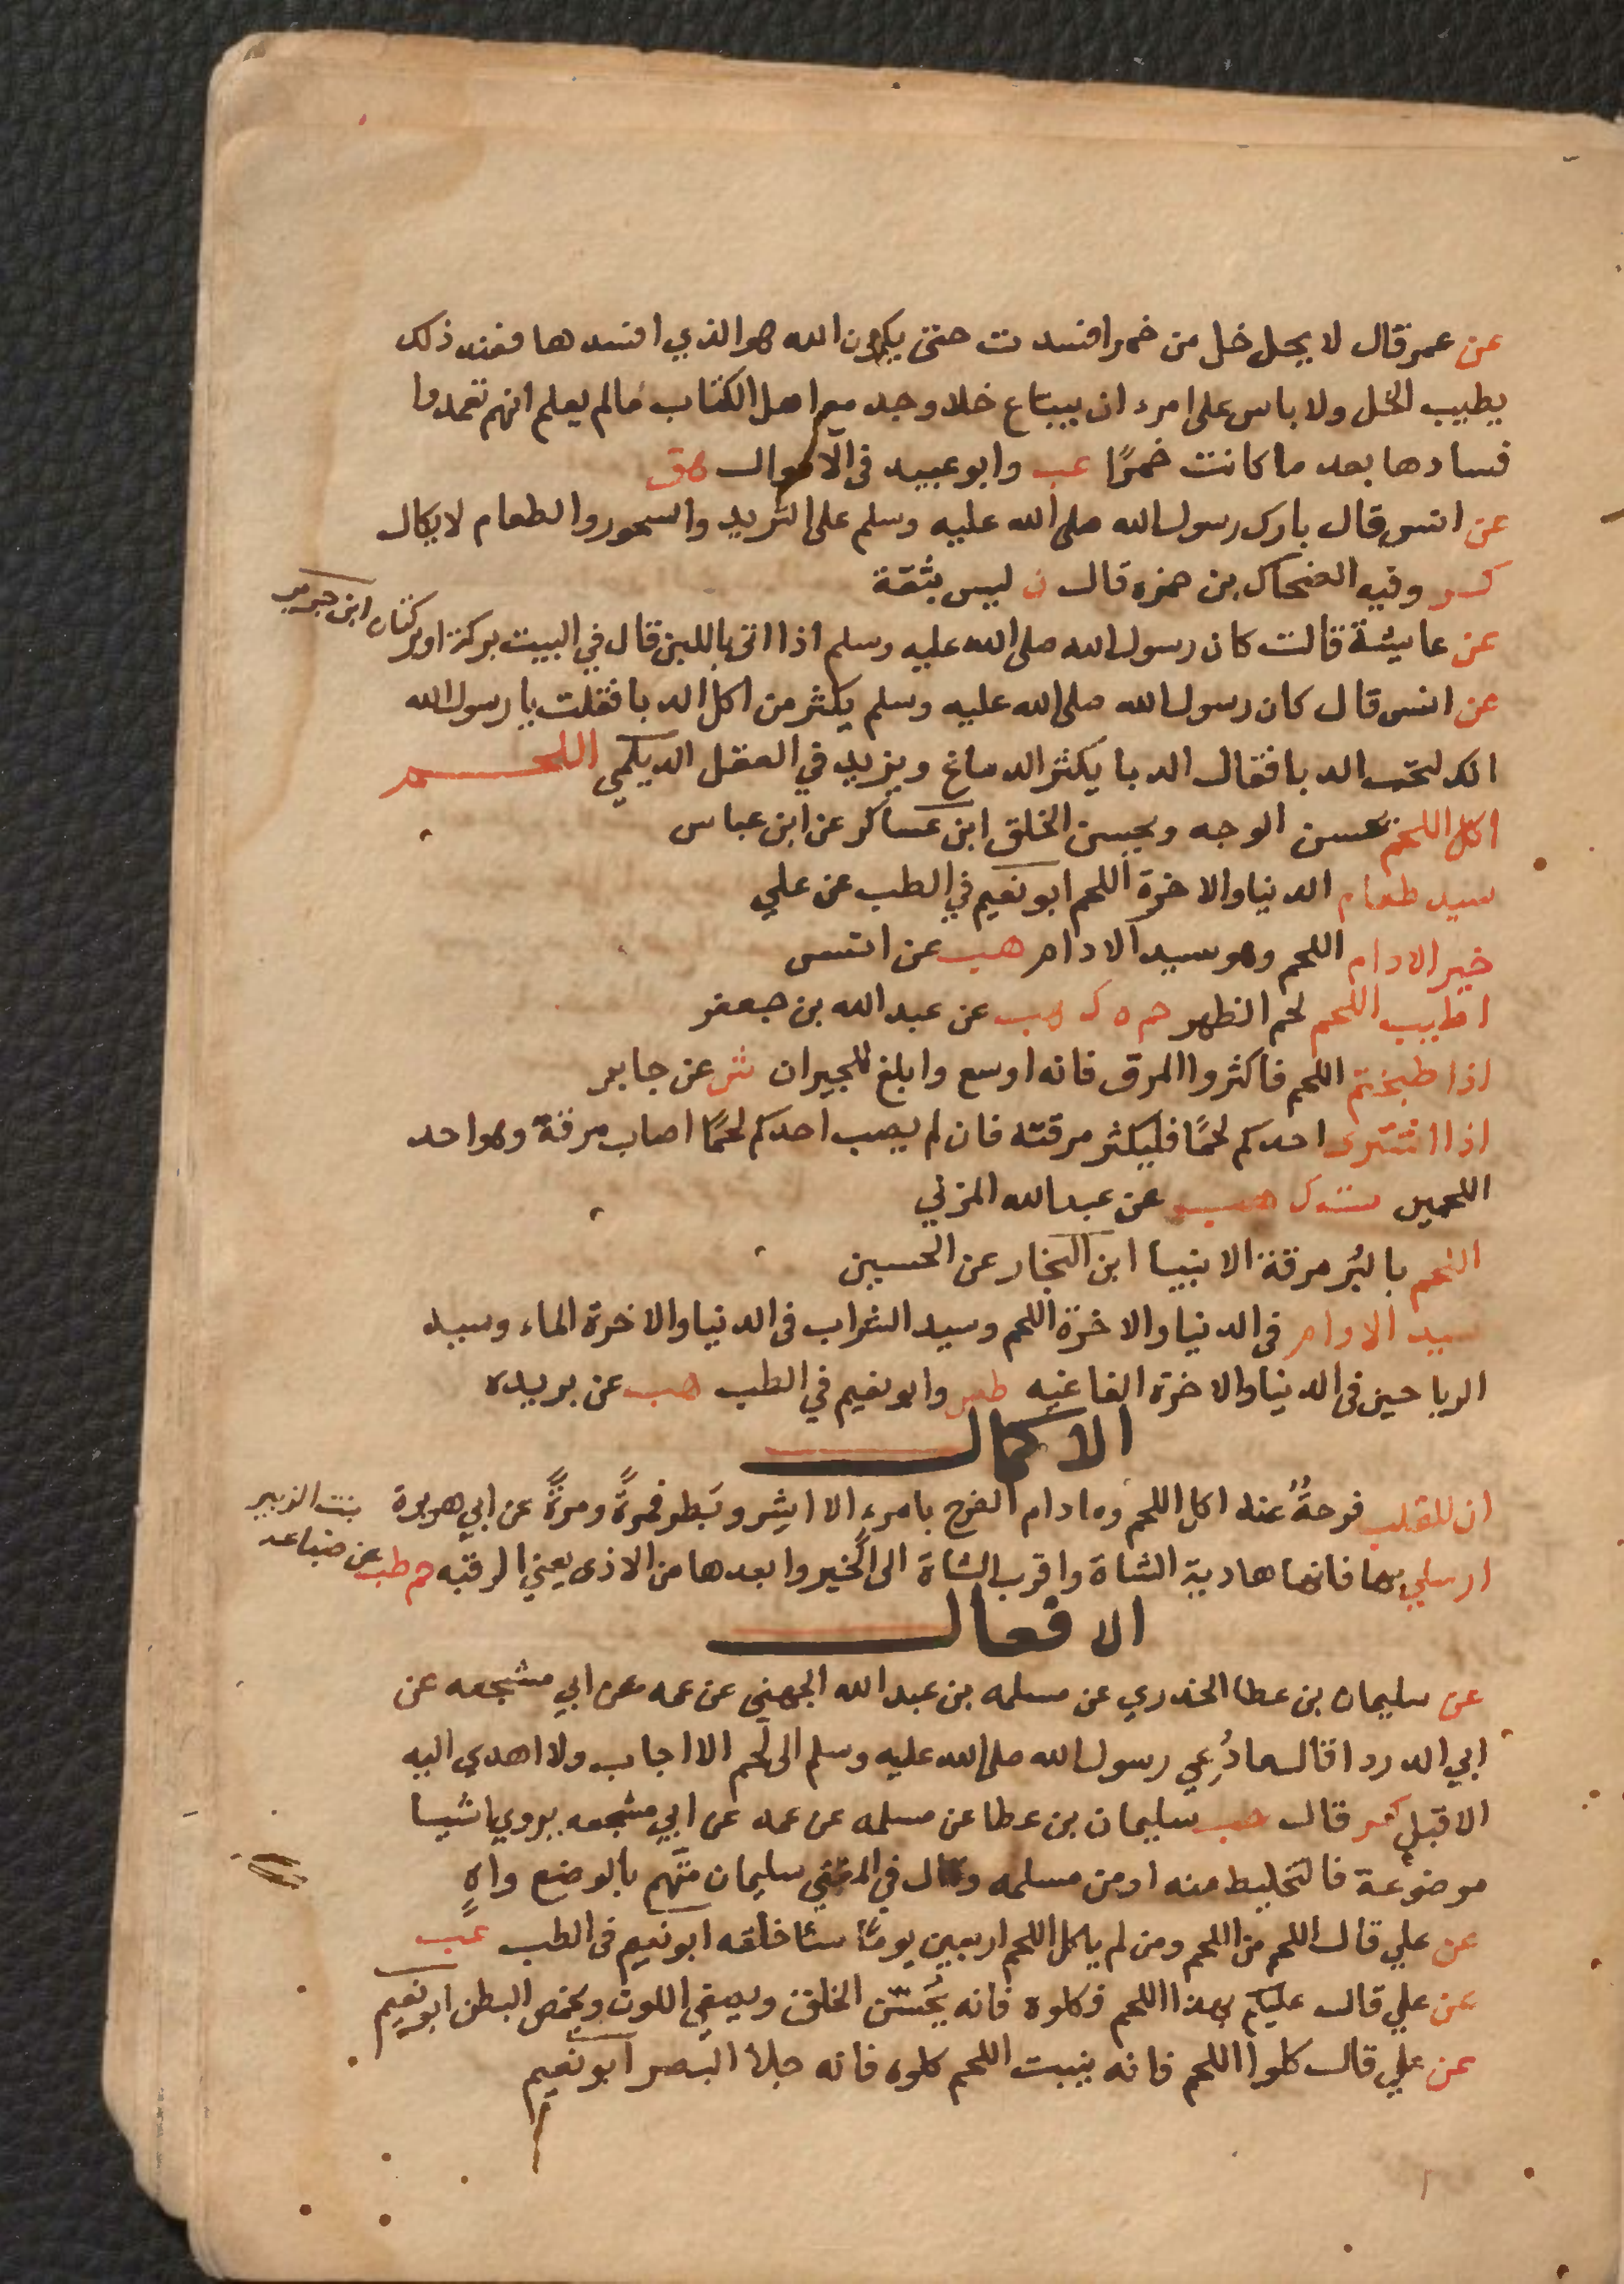 عن عمر قال لا يحل خل من خمر افسدت حتى يكون الله هو الذي افسدها فعند ذلك
يطيب الخل ولا باس على امرء ان يبتاع خلا وجد مع اهل الكتاب مالم يعلم انهم تعمدوا
فسادها بعد ما كانت خمرًا عب وابو عبيد فى الاموال هق
عن انس قال بارك رسول الله صلى الله عليه وسلم على الثريد والسحور والطعام لا يكال
كر وفيه الضحاك بن حمزه قال ن ليس بثقة
عن عايشة قالت كان رسول الله صلى الله عليه وسلم اذا اتى باللبن قال في البيت بركة او بركتان ابن جرير
عن انس قال كان رسول الله صلى الله عليه وسلم يكثر من اكل الدبا فقلت يا رسول الله
انك لتحب الدبا فقال الدبا يكثر الدماغ ويزيد في العقل الديلمي اللحم
اكل اللحم يحسن الوجه ويحسن الخلق ابن عساكر عن ابن عباس
سيد طعام الدنيا والاخرة اللحم ابو نعيم في الطب عن علي
خير الادام اللحم وهو سيد الادام هب عن انس
اطيب اللحم لحم الظهر حم ه ك هب عن عبد الله بن جعفر
اذا طبختم اللحم فاكثروا المرق فانه اوسع وابلغ للجيران ش عن جابر
اذا اشترى احدكم لحمًا فليكثر مرقته فان لم يصب احدكم لحمًا اصاب مرقة وهو احد
اللحمين ت ك هب عن عبد الله المزني
اللحم بالبُر مرقة الانبيا ابن النجار عن الحسين
سيد الادام فى الدنيا والاخرة اللحم وسيد الشراب فى الدنيا والاخرة الماء وسيد
الرياحين فى الدنيا والاخرة الفاغيه طس وابو نعيم في الطب هب عن بريده
الاكمال
ان للقلب فرحةً عند اكل اللحم وما دام الفرح بامرءٍ الا اشر وبطر فمرةً ومرةً عن ابي هريرة
ارسلي بها فانها هادية الشاة واقرب الشاة الى الخير وابعدها من الاذى يعني الرقبه حم طب عن ضباعه بنت الزبير
الافعال
عن سليمان بن عطا الخدري عن مسلمه بن عبد الله الجهني عن عمه عن ابي مشجعه عن
ابي الدردا قال ما دُعِي رسول الله صلى الله عليه وسلم الى لحم الا اجاب ولا اهدي اليه
الا قبل كر قال حب سليمان بن عطا عن مسلمه عن عمه عن ابي مشجعه يروي اشيا
موضوعة فالتخليط منه او من مسلمه وقال في المغني سليمان متهم بالوضع واهٍ
عن علي قال اللحم من اللحم ومن لم ياكل اللحم اربعين يومًا سا خلقه ابو نعيم فى الطب عب
عن علي قال عليكم بهذا اللحم فكلوه فانه يُحسّن الخلق ويصفي اللون ويخمص البطن ابو نعيم
عن علي قال كلوا اللحم فانه ينبت اللحم كلوه فانه جلا البصر ابو نعيم